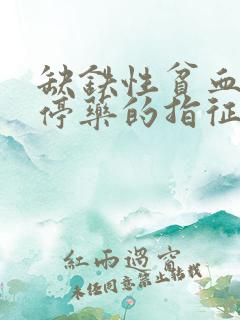 缺铁性贫血
停药的指征
紅雨過窗
未经同意禁止转载